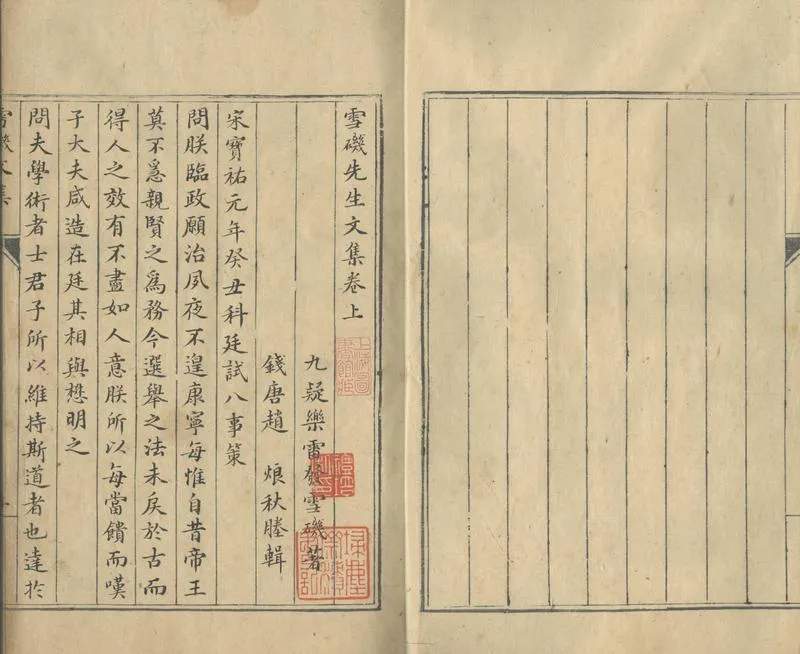 雪磯先生文集卷上
九疑樂雷發雪磯著
錢唐趙 烺秋塍輯
宋寶祐元年癸丑科廷試八事策
問朕臨政願治夙夜不遑康寧每惟自昔帝王
莫不急親賢之為務今選舉之法未戾於古而
得人之效有不盡如人意朕所以每當饋而嘆
子大夫咸造在廷其相與懋明之
問夫學術者士君子所以維持斯道者也達於
雪磯文集